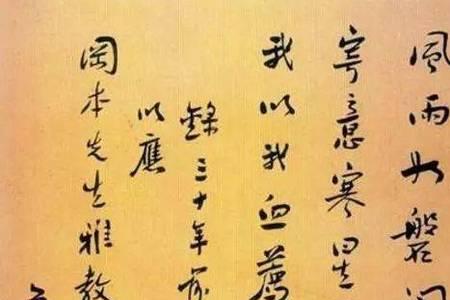 風雨如磐
寄意寒星
我以我血薦
錄三十年前
以應
岡本先生雅教